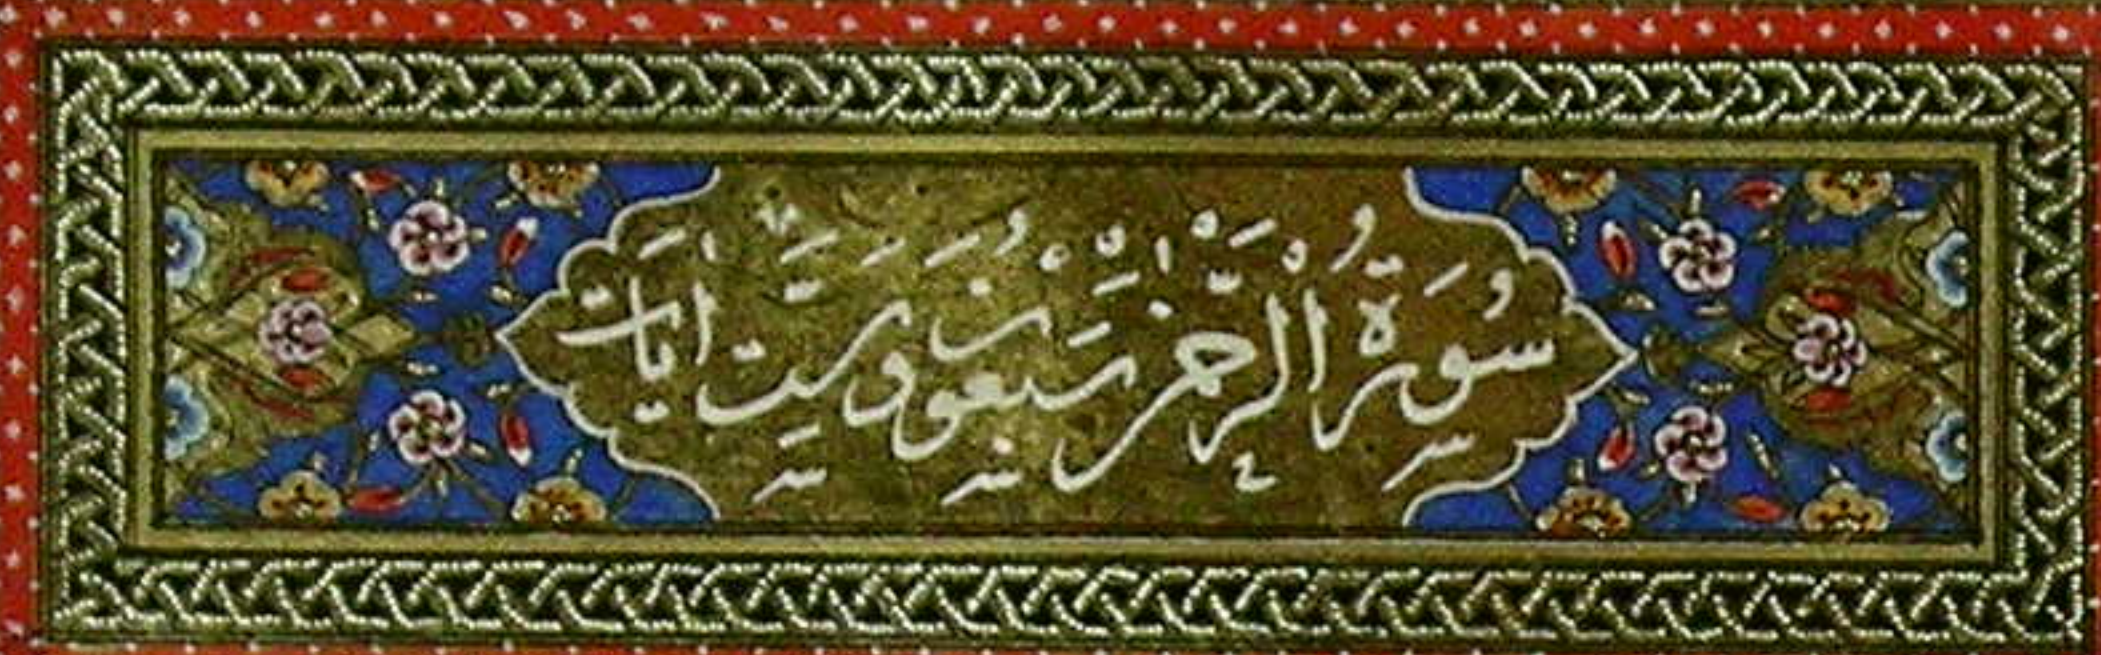 سُورَةُ الْرَّحْمٰنِ سَبْعُونَ وَسِتَّ اٰيَات